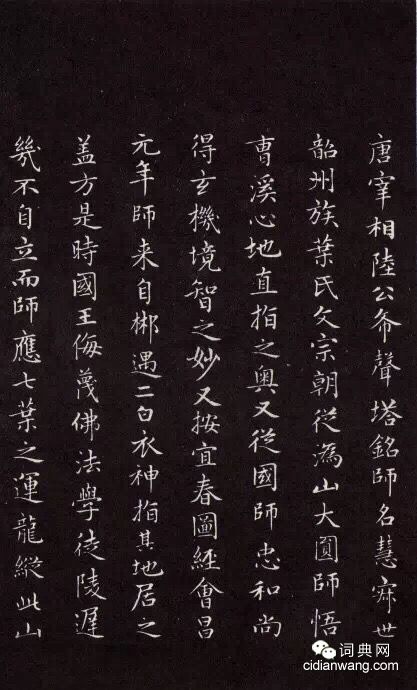 唐宰相陸公希聲塔銘師名慧寂世
韶州族葉氏文宗朝從溈山大圓師悟
曹溪心地直指之奧又從國師忠和尚
得玄機境智之妙又按宜春圖經會昌
元年師来自郴遇二白衣神指其地居之
盖方是時國王侮蔑佛法學徒陵遲
幾不自立而師應七葉之運龍縱此山
词典网
cidianwang.com